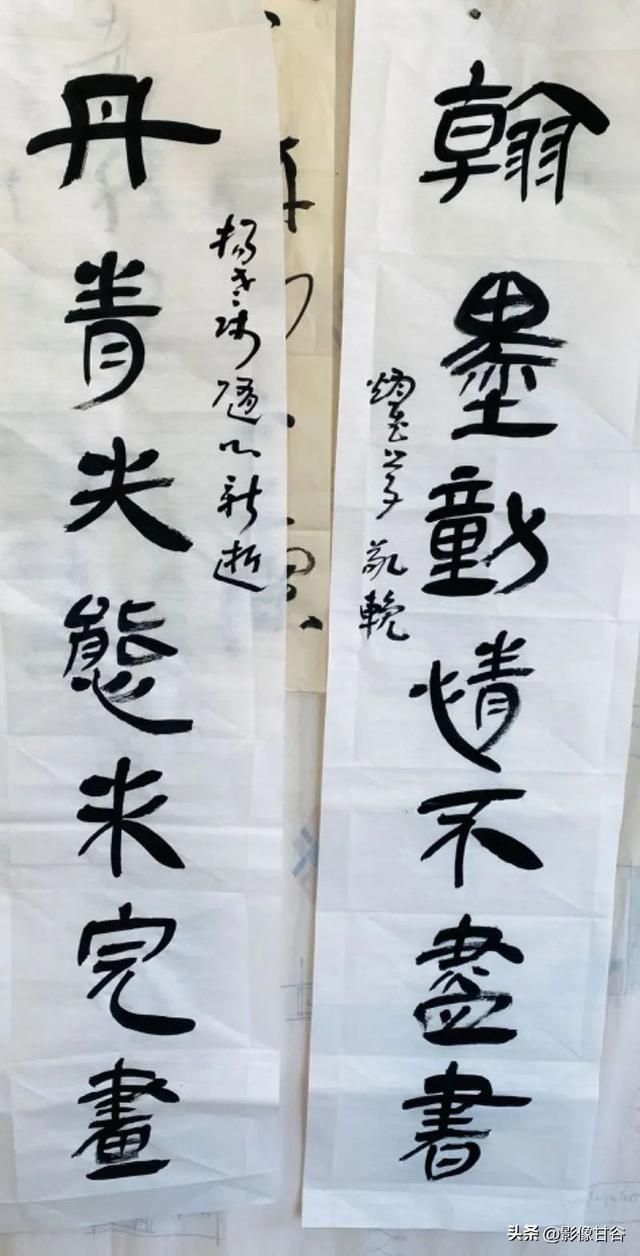 翰墨動情不盡書
敬輓
丹青失態未完畫
新逝
头条 @影像甘谷